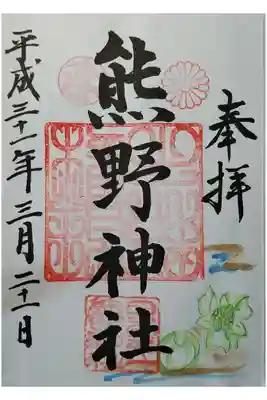 奉拝
熊野神社
平成三十一年三月二十一日